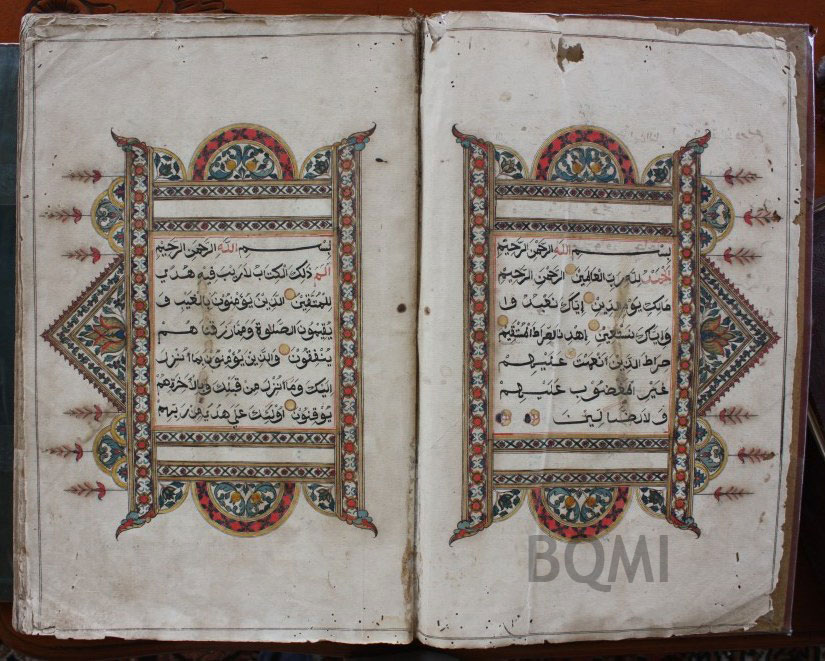 بسم الله الرحمن الرحيم
الحمد لله رب العالمين الرحمن الرحيم
مالك يوم الدين اياك نعبد وا
واياك نستعين اهدنا الصراط المستقيم
صراط الذين انعمت عليهم
غير المغضوب عليهم
ولا الضالين
بسم الله الرحمن الرحيم
الم ذلك الكتاب لاريب فيه هدي
للمتقين الذين يؤمنون بالغيب و
يقيمون الصلوة ومما رزقناهم
ينفقون والذين يؤمنون بما انزل
اليك وما انزل من قبلك وبالاخرة هم
يوقنون اولئك على هدي من ربهم
BQMI